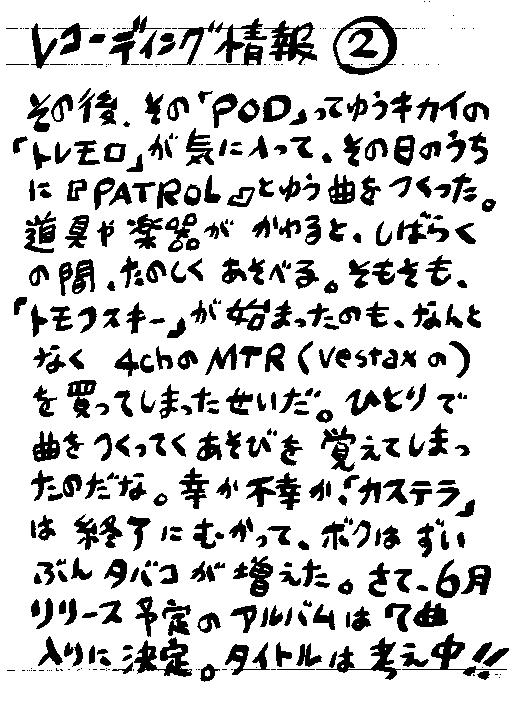 レコーディング情報②
その後、その「POD」ってゆうキカイの
「トレモロ」が気に入って、その日のうち
に『PATROL』とゆう曲をつくった。
道具や楽器がかわると、しばらく
の間、たのしくあそべる。そもそも、
「トモフスキー」が始まったのも、なんと
なく 4chのMTR(Vestaxの)
を買ってしまったせいだ。ひとりで
曲をつくってくあそびを覚えてしまっ
たのだな。幸か不幸か、「カステラ」
は終了にむかって、ボクはずい
ぶんタバコが増えた。さて、6月
リリース予定のアルバムは7曲
入りに決定。タイトルは考え中!!